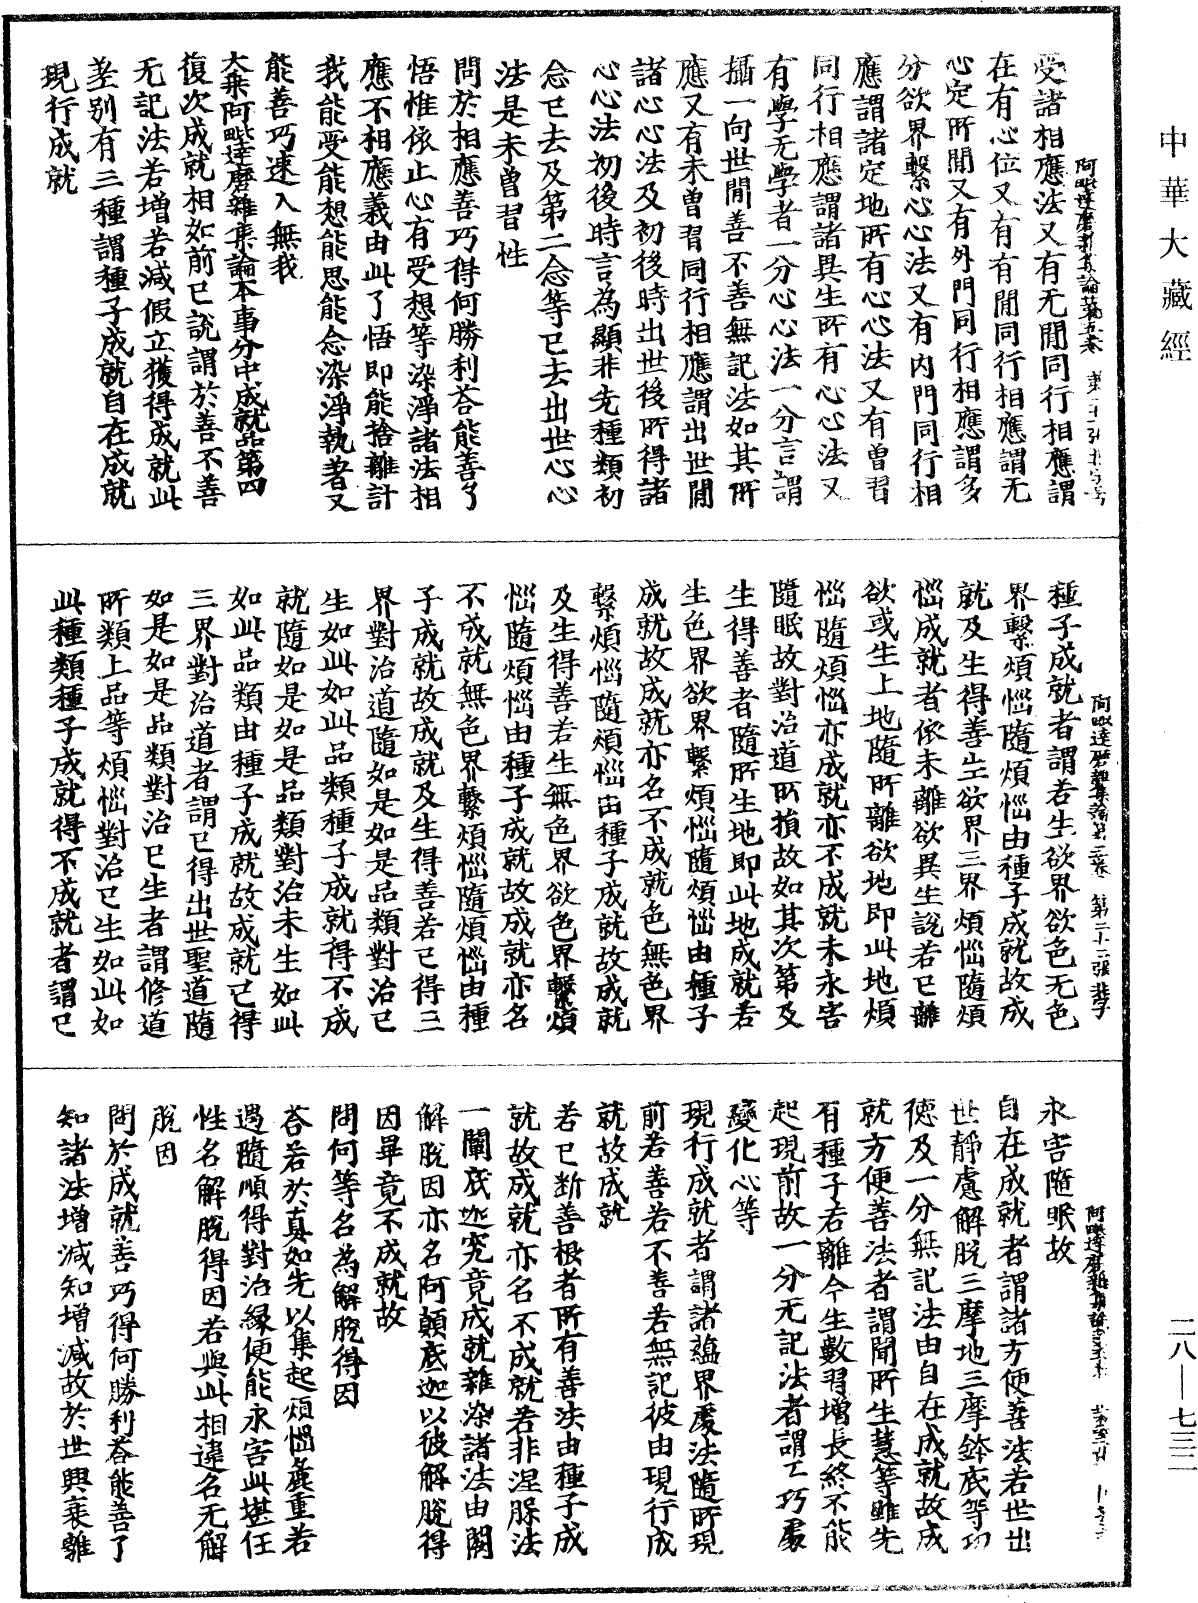 中華大藏經
受諸相應法又有无間同行相應謂
在有心位又有有間同行相應謂无
心定所間又有外門同行相應謂多
分欲界繫心心法又有內門同行相
應謂諸定地所有心心法又有曾習
同行相應謂諸異生所有心心法又
有學无學者一分心心法一分言謂
攝一向世間善不善無記法如其所
應又有未曾習同行相應謂出世間
諸心心法及初後時出世後所得諸
心心法初後時言為顯非先種類初
念已去及第二念等已去出世心心
法是未曾習性
問於相應善巧得何勝利荅能善了
悟惟依止心有受想等染淨諸法相
應不相應義由此了悟即能捨離計
我能受能想能思能念染淨執著又
能善巧速入無我
大乗阿毗達磨雜集論本事分中成就品第四
復次成就相如前已說謂於善不善
无記法若增若減假立獲得成就此
差别有三種謂種子成就自在成就
現行成就
阿毗達磨雜集論第三卷 第二十二張 非字
種子成就者謂若生欲界欲色无色
界繫煩惱隨煩惱由種子成就故成
就及生得善生欲界三界煩惱隨煩
惱成就者依未離欲異生說若已離
欲或生上地隨所離欲地即此地煩
惱隨煩惱亦成就亦不成就未永害
隨眠故對治道所損故如其次第及
生得善者隨所生地即此地成就若
生色界欲界繫煩惱隨煩惱由種子
成就故成就亦名不成就色無色界
繫煩惱隨煩惱由種子成就故成就
及生得善若生無色界欲色界繫煩
惱隨煩惱由種子成就故成就亦名
不成就無色界繫煩惱隨煩惱由種
子成就故成就及生得善若已得三
界對治道隨如是如是品類對治已
生如此如此品類種子成就得不成
就隨如是如是品類對治未生如此
如此品類由種子成就故成就已得
三界對治道者謂已得出世聖道隨
如是如是品類對治已生者謂修道
所類上品等煩惱對治已生如此如
此種類種子成就得不成就者謂已
永害隨眠故
自在成就者謂諸方便善法若世出
世靜慮解脫三摩地三摩鉢底等功
德及一分無記法由自在成就故成
就方便善法者謂聞所生慧等雖先
有種子若離今生數習增長終不能
起現前故一分无記法者謂工巧處
變化心等
現行成就者謂諸蘊界處法隨所現
前若善若不善若無記彼由現行成
就故成就
若已断善根者所有善法由種子成
就故成就亦名不成就若非涅槃法
一闡底迦究竟成就雜染諸法由闕
解脫因亦名阿顛底迦以彼解脫得
因畢竟不成就故
問何等名為解脫得因
荅若於真如先以集起煩惱麁重若
遇隨順得對治縁便能永害此堪任
性名解脫得因若與此相違名无解
脫因
問於成就善巧得何勝利荅能善了
知諸法增減知增減故於世興衰離
二八—七三二